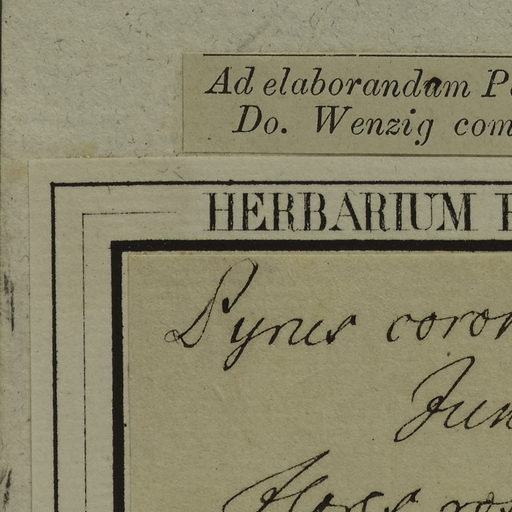 Ad elaborandam P
Do. Wenzig com
HERBARIUM
Pyrus coron
Jun
Flores ros